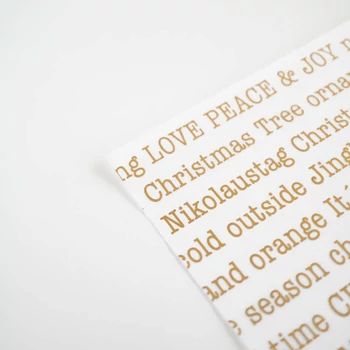 ng LOVE PEACE & JOY
Christmas Tree orna
Nikolaustag Christ
cold outside Jingl
and orange It
season ch
time